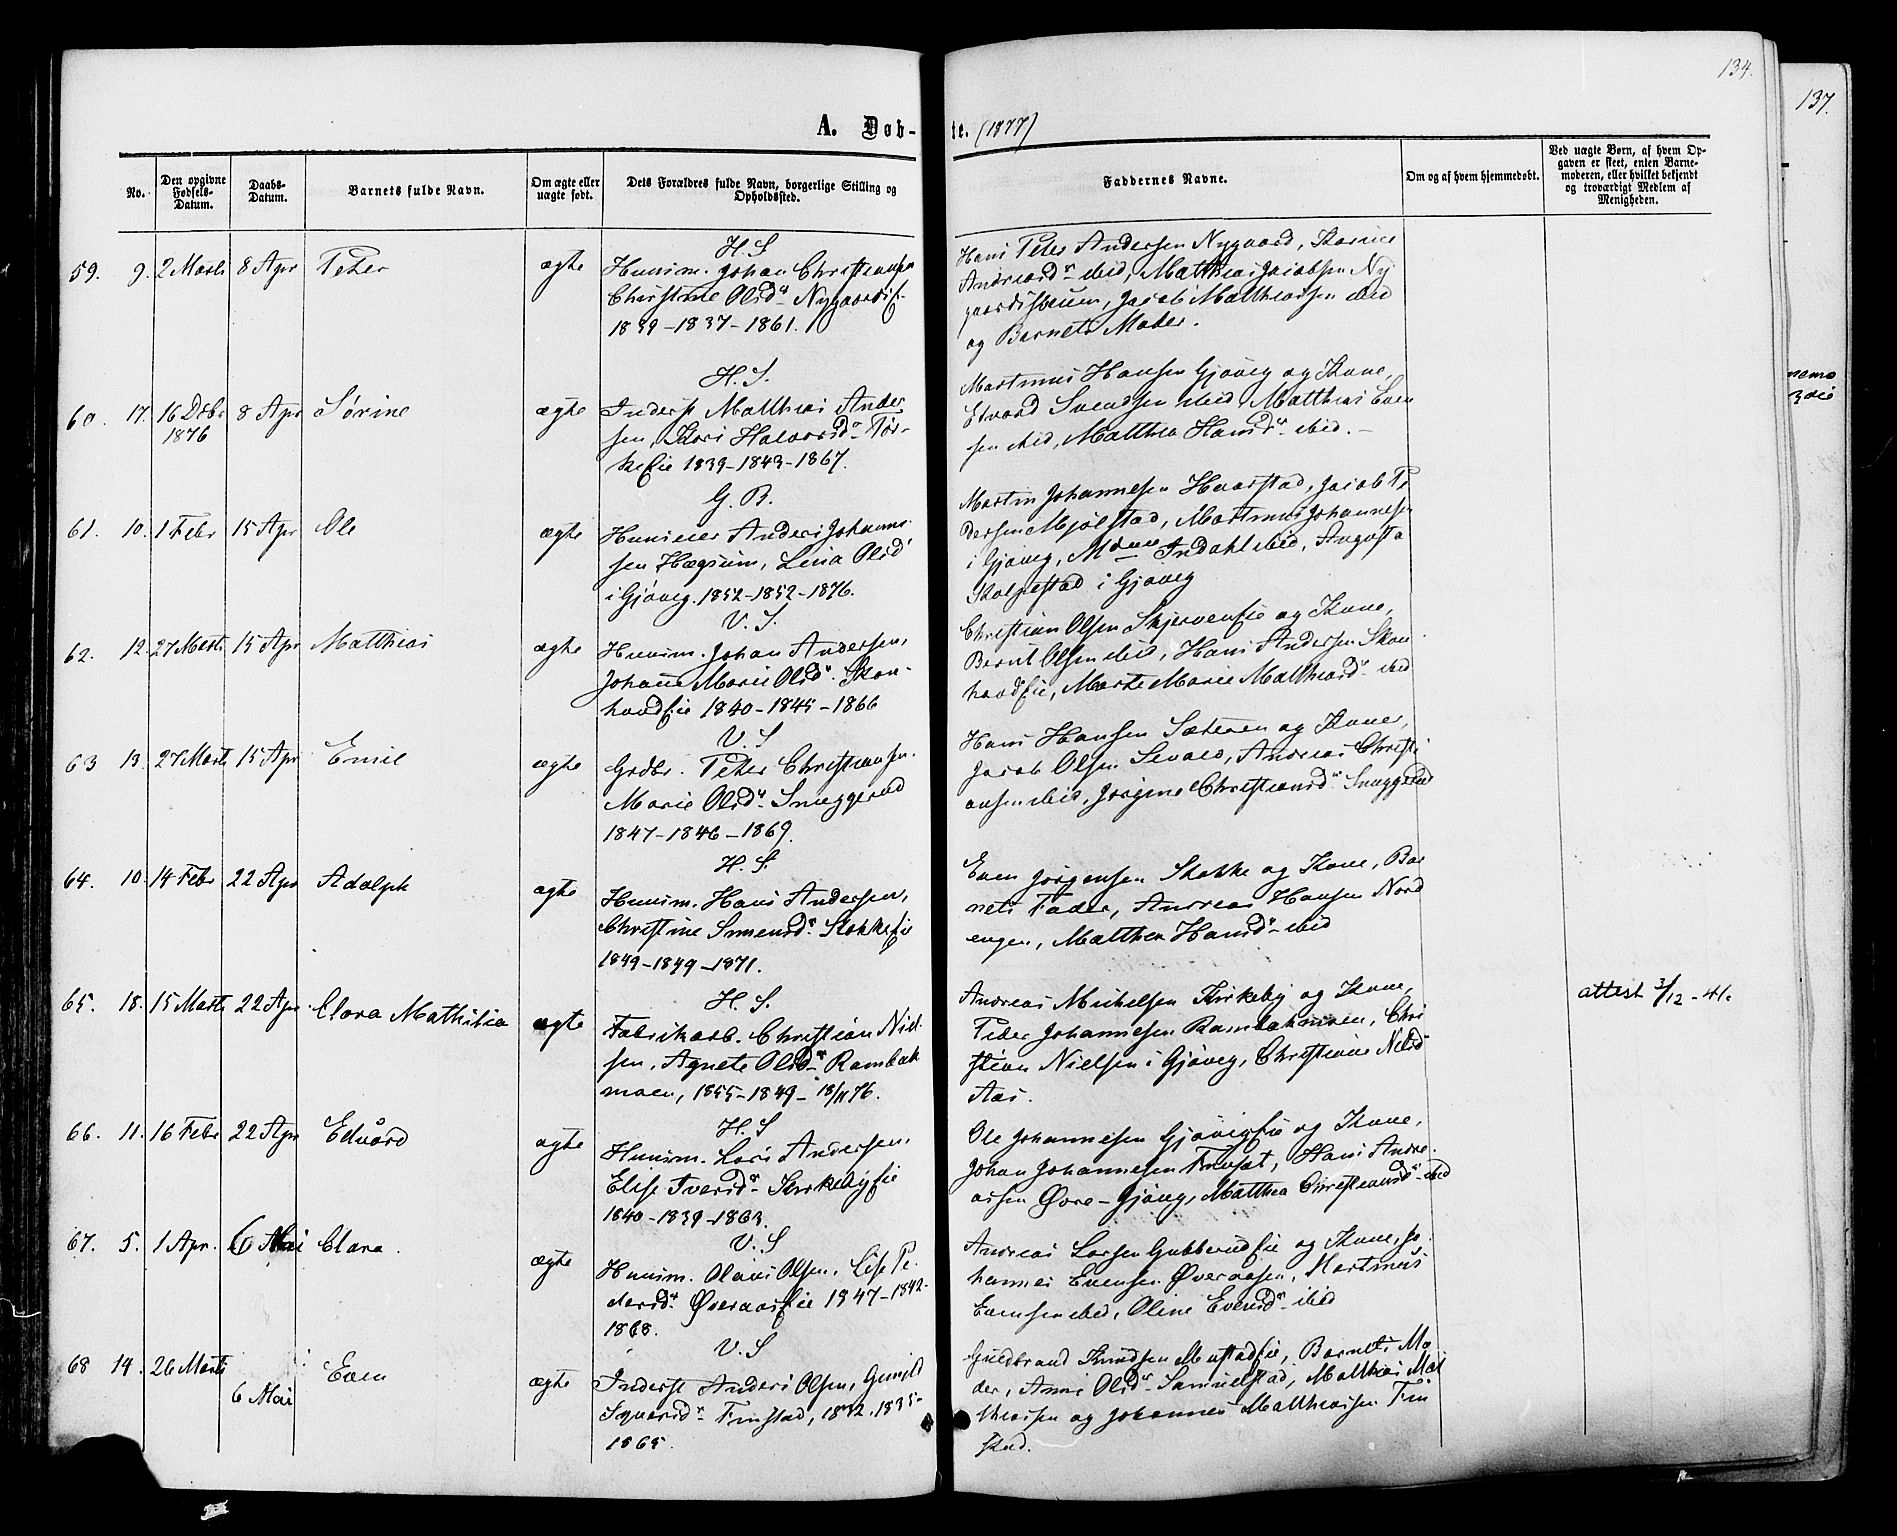 134.
137.
A. Døb-
te. (1877)
No.
Den opgivne Fødsels-Datum.
Daabs-Datum.
Barnets fulde Navn.
Om ægte eller uægte født.
Dets Forældres fulde Navn, borgerlige Stilling og Opholdssted.
Faddernes Navne.
Om og af hvem hjemmedøbt.
Ved uægte Børn, af hvem Op-
gaven er skeet, enten Barne-
moderen, eller hvilket bekjendt
og troværdigt Medlem af
Menigheden.
59. 9. 2 Marts 8 Apr Peter ægte
H. S
Huusm. Johan Christiansen
Christine Olsd.
1839-1837-1861.
Hans Peter Andersen Nygaard, Karine
Andreasd. ibid, Matthias Jacobsen Ny
Jacob Matthiassen ibid
og Barnets Moder.
60. 17. 16 Dcbr 1876 8 Apr Sørine ægte
H. S.
Inderst Matthias Ander
sen, Kari Halvorsd. Tør-
1839-1843-1867.
Martinus Hansen Gjøvig og Kone,
Edvard Svendsen ibid, Matthias Even
sen ibid, Matthea Hansd. ibid.
61. 10. 1 Febr 15 Apr Ole ægte
G. B.
Anders Johanne
sen Lina Olsd
i Gjøvig. 1852-1852-1876.
Martin Johannesen Jacob Pe
dersen Mjølstad, Martinus Johannesen
i Gjøvig, ibid, Augusta
i Gjøvig
62. 12. 27 Marts 15 Apr Matthias ægte
V. S.
Huusm. Johan Andersen,
Johanne Marie Olsd. Skon-
1840-1845-1866
Christian Olsen Skjervenseie og Kone,
Bernt Olsen ibid, Hans Andersen Skon
Marte Marie Matthiasd. ibid
63 13. 27 Marts 15 Apr Emil ægte
V. S
Grdbr. Peter Christiansen.
Marie Olsd. Snuggerud
1847-1846-1869.
Hans Hansen Sæteren og Kone,
Jacob Olsen Andreas Christi
ansen ibid, Jørgine Christiansd. Snuggerud
64. 10. 14 Febr 22 Apr Adolph ægte
H. S.
Huusm. Hans Andersen,
Christine Simensd. Stokkeeie
1849-1849-1871.
Even Jørgensen Stokke og Kone, Bar
nets Fader, Andreas Hansen Nord
engen, Matthea Hansd. ibid
65. 18. 15 Marts 22 Apr. Clara Mathilia ægte
H. S.
Fabrikarb. Christian Niel-
sen, Agnete Olsd. Rambæk
moen, 1855-1849- 18/11 76.
Andreas Michelsen Kirkeby og Kone,
Peder Johannesen Rambækmoen, Chri
stian Nielsen i Gjøvig, Christiane Nielsd
Aas.
attest 3/12 - 41.
66. 11. 16 Febr 22 Apr Edvard ægte
H. S
Huusm. Lars Andersen,
Elise Iversd. Kirkebyeie
1840-1839-1863.
Ole Johannesen Gjøvigeie og Kone,
Johan Johannesen Hans Andre
assen Øvre-Gjøvig, Matthea Christiansd. ibid
67. 5. 1 Apr. 6 Mai Clara. ægte
V. S
Huusm. Olaus Olsen, Lise Pe
dersd. Øveraaseie 1847-1842-
1868.
Andreas Larsen Gubberudeie og Kone, Jo
hannes Evensen Øveraasen, Martinus
Evensen ibid, Oline Evensd. ibid
68 14. 26 Marts 6 Mai Even ægte
V. S
Inderst Anders Olsen, Gunild
Syversd. Finstad, 1832. 1835-
1865.
Guldbrand Knudsen Mustadeie, Barnets Mo
der, Anne Olsd. Samuelstad, Matthias Mat
thiassen og Johannes Matthiassen Fin
stad.